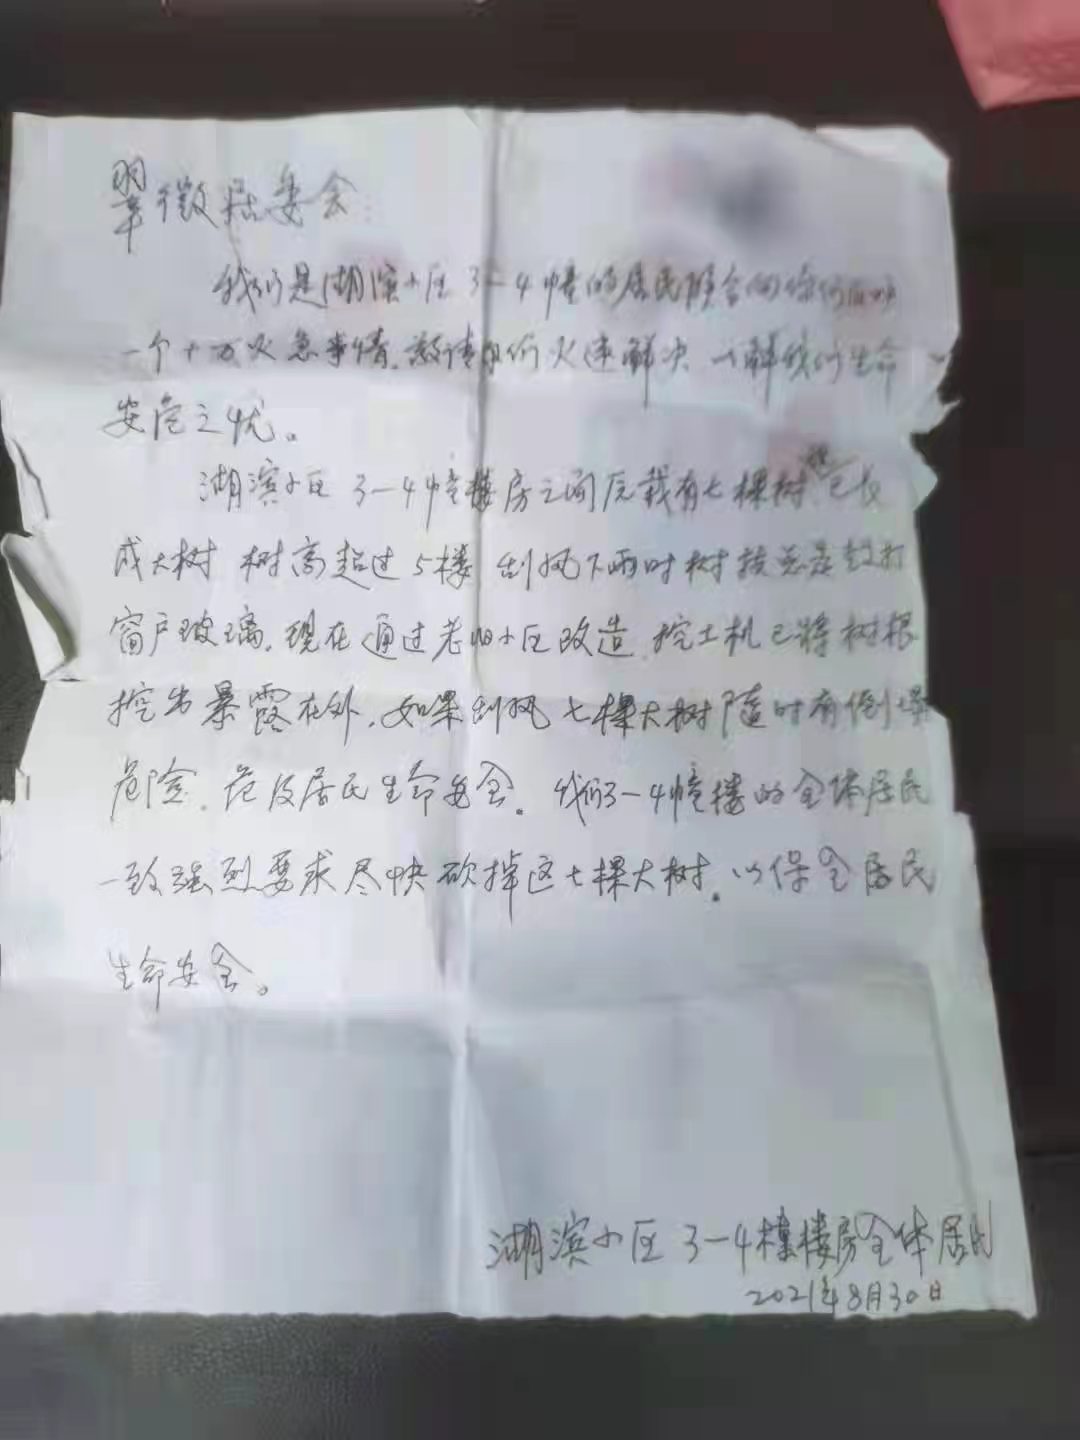 翠微居委会
我们是湖滨小区3-4幢的居民联合向你们反映
一个十万火急事情.敬请你们火速解决 以解我们生命
安危之忧。
湖滨小区 3-4幢楼房之间 栽有七棵树 已长
成大树 树高超过5楼 刮风下雨时树枝总是敲打
窗户玻璃.现在通过老旧小区改造.挖土机已将树根
挖出暴露在外.如果刮风 七棵大树随时有倒塌
危险.危及居民生命安全.我们3-4幢楼的全体居民
一致强烈要求尽快砍掉这七棵大树.以保全居民
生命安全。
湖滨小区 3-4幢楼房全体居民
2021年8月30日